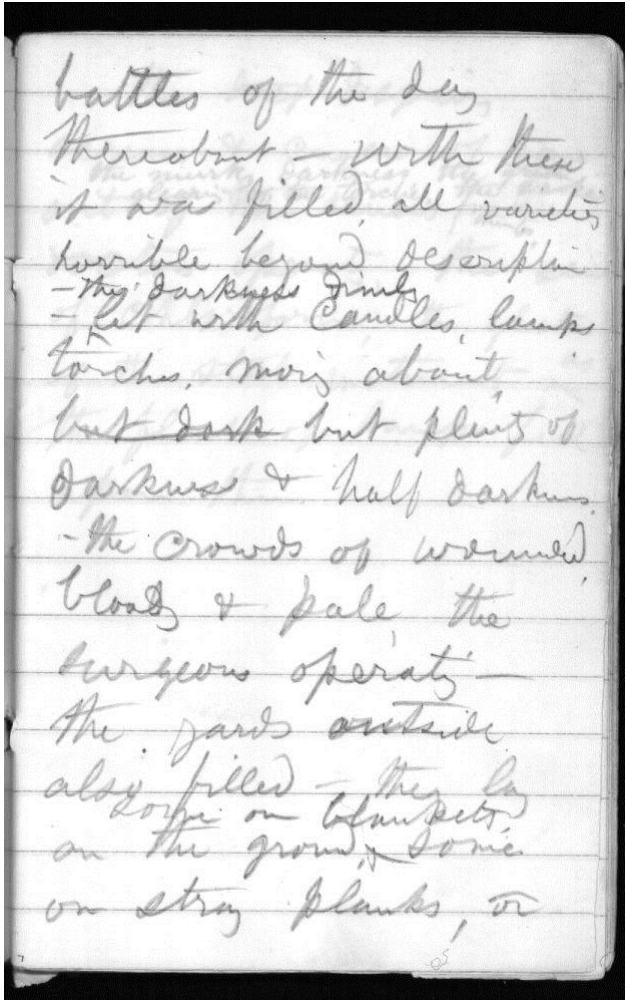 battles of the day
thereabout – with these
it was filled, all varieties
horrible beyond description
– the darkness dimly
– lit with candles, lamps
torches, moving about,
but dark but plenty of
darkness & half darkness.
– the crowds of wounded,
bloody & pale, the
surgeons operating –
the yards outside
also filled – they lay
some on blankets,
on the ground, some
on stray planks, or